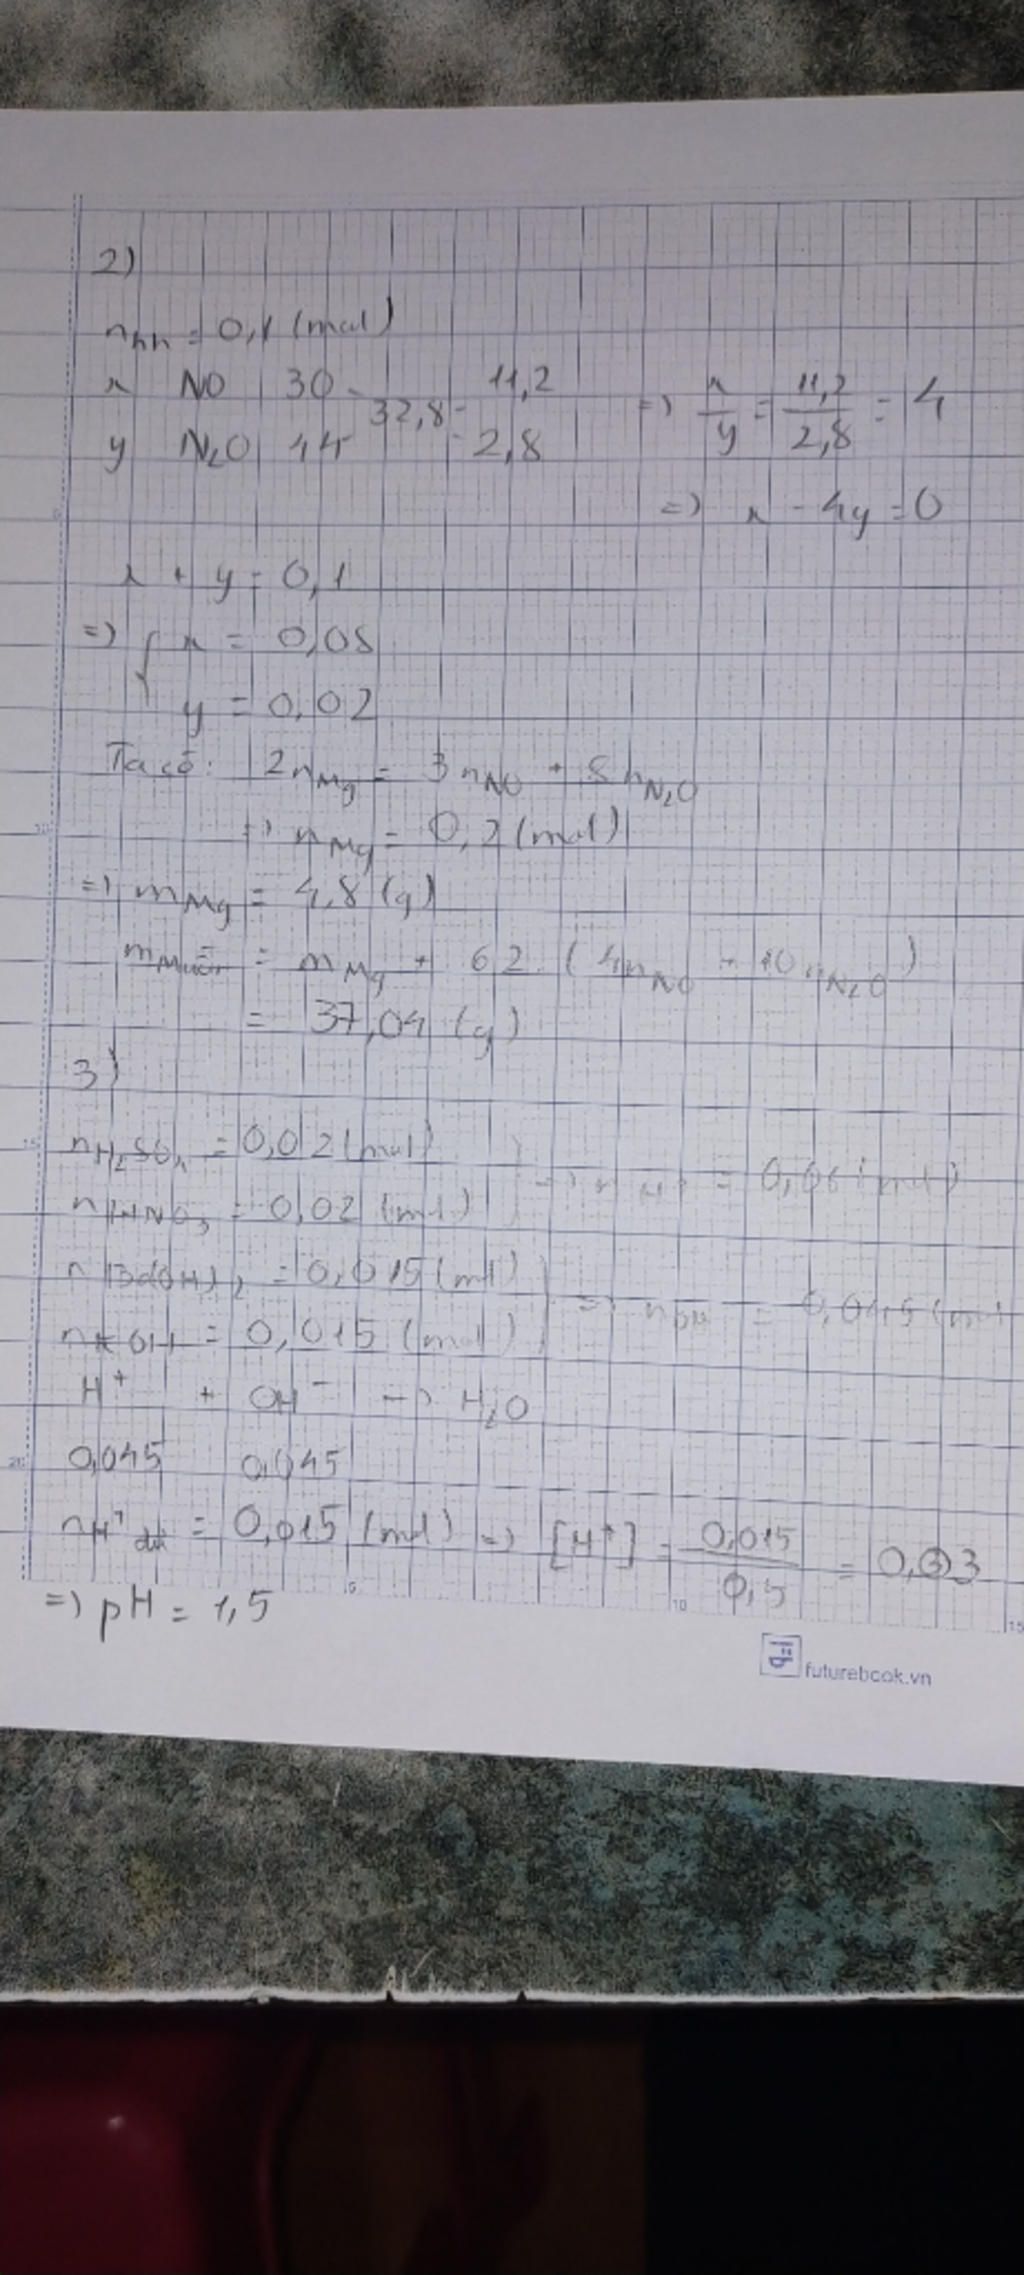 2)
nhh = 0,1 (mol)
x NO 30 11,2
32,8
y N₂O 44 2,8
=> x/y = 11,2/2,8 = 4
=> x - 4y = 0
x + y = 0,1
=> { x = 0,08
y = 0,02
Ta có: 2nMg = 3nNO + 8nN₂O
=> nMg = 0,2 (mol)
=> mMg = 4,8 (g)
mMuối = mMg + 62 . (4nNO + 10nN₂O)
= 37,04 (g)
3)
nH₂SO₄ = 0,02 (mol)
nHNO₃ = 0,02 (mol)
=> nH⁺ = 0,06 (mol)
nBa(OH)₂ = 0,015 (mol)
nKOH = 0,015 (mol)
=> nOH⁻ = 0,045 (mol
H⁺ + OH⁻ -> H₂O
0,045 0,045
nH⁺ dư = 0,015 (mol) => [H⁺] = 0,015/0,5 = 0,03
=> pH = 1,5
5 10 15
20
futurebook.vn